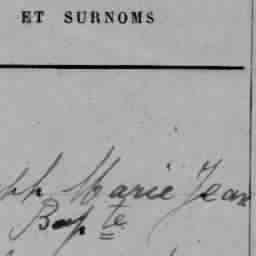 ET SURNOMS
ph Marie Jean
Bapte